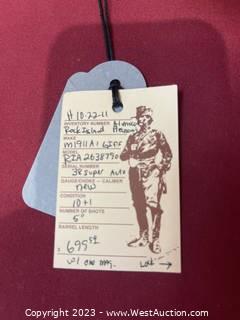 H 10-22-11
INVENTORY NUMBER
Rock Island Armory
MAKE
M1911A1 GIFF
RIA2038790
SERIAL NUMBER
38 Super Auto
GAUGE/CHOKE - CALIBER
new
CONDITION
10+1
NUMBER OF SHOTS
5"
BARREL LENGTH
$ 699
w/ one mag.
Copyright © 2023 - WestAuction.com